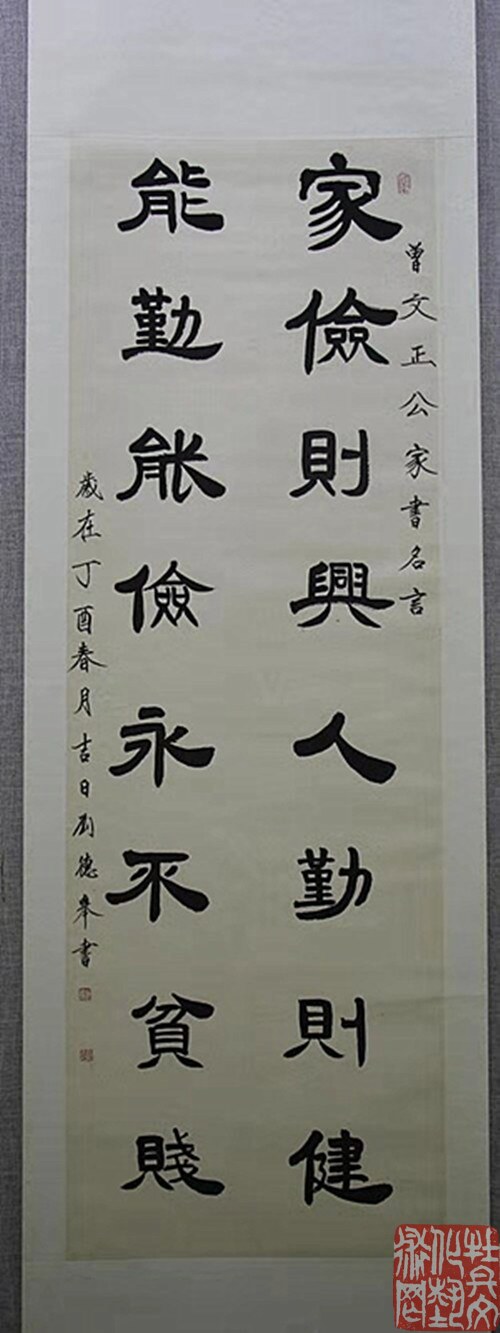 曾文正公家書名言
家儉則興人勤則健
能勤能儉永不貧賤
歲在丁酉春月吉日刘德举書